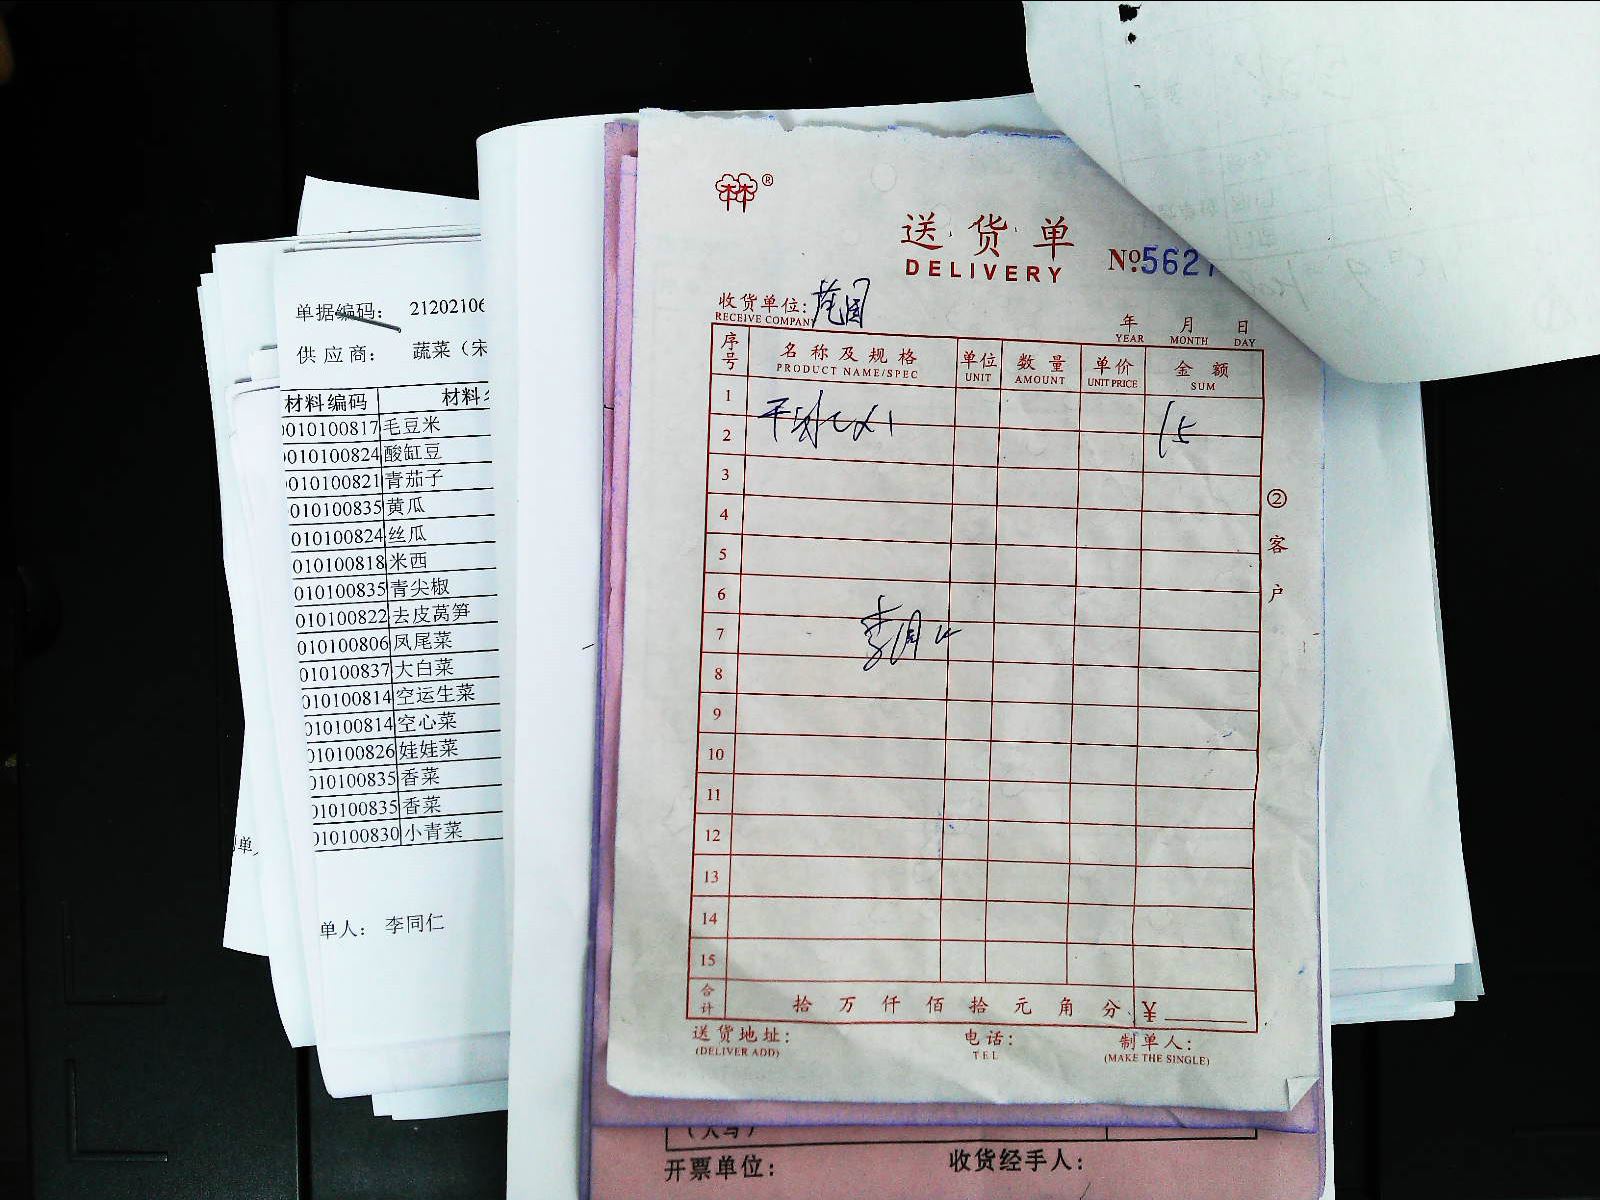 单据编码： 21202106
供 应 商： 蔬菜（宋
材料编码 材料
0010100817 毛豆米
0010100824 酸缸豆
0010100821 青茄子
010100835 黄瓜
010100824 丝瓜
010100818 米西
010100835 青尖椒
010100822 去皮莴笋
010100806 凤尾菜
010100837 大白菜
010100814 空运生菜
010100814 空心菜
010100826 娃娃菜
010100835 香菜
010100835 香菜
010100830 小青菜
单人： 李同仁
单
®
送货单
DELIVERY
№5621
收货单位:
RECEIVE COMPANY
年 月 日
YEAR MONTH DAY
序号 名称及规格 单位 数量 单价 金额
PRODUCT NAME/SPEC UNIT AMOUNT UNIT PRICE SUM
1
2
15
3
4
5
6
7
8
9
10
11
12
13
14
15
合计 拾 万 仟 佰 拾 元 角 分 ¥
送货地址: 电话: 制单人:
(DELIVER ADD) TEL (MAKE THE SINGLE)
② 客户
(大写)
开票单位: 收货经手人: